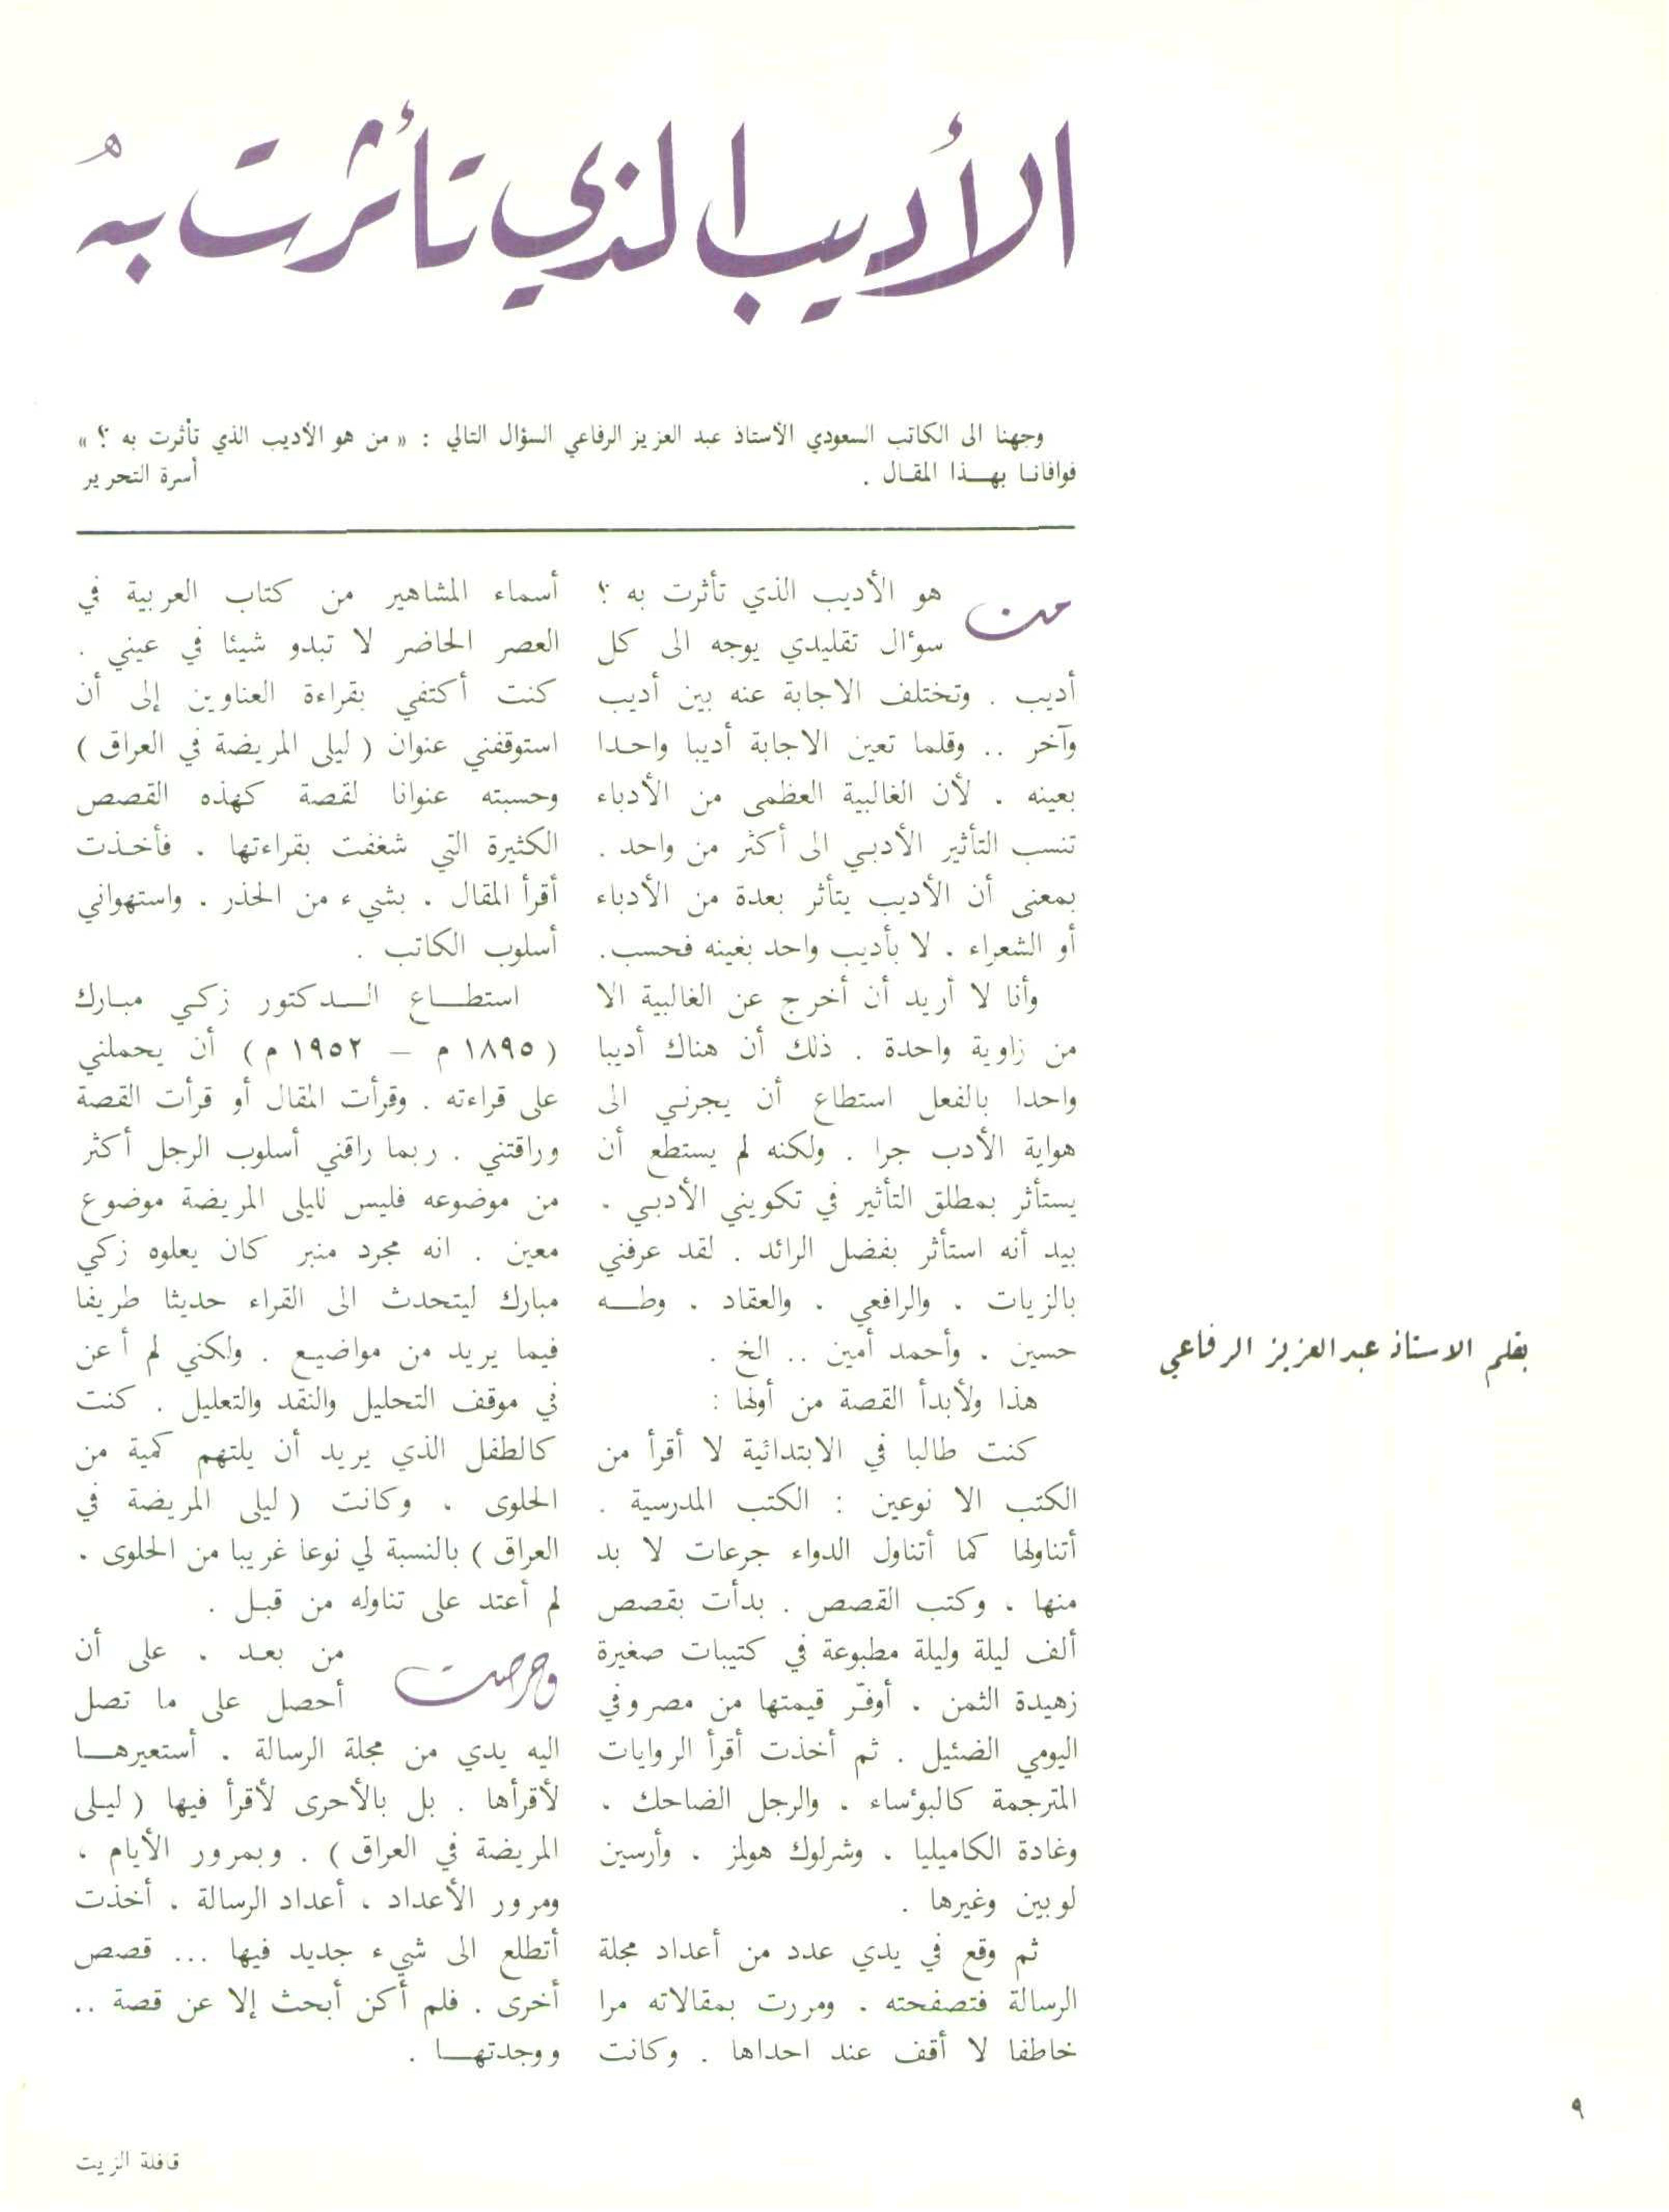 الأديب الذي تأثرت به
وجهنا الى الكاتب السعودي الأستاذ عبد العزيز الرفاعي السؤال التالي : « من هو الأديب الذي تأثرت به ؟ »
فوافانا بهذا المقال .
أسرة التحرير
من هو الأديب الذي تأثرت به ؟
سؤال تقليدي يوجه الى كل
أديب . وتختلف الاجابة عنه بين أديب
وآخر .. وقلما تعين الاجابة أديبا واحدا
بعينه ، لأن الغالبية العظمى من الأدباء
تنسب التأثير الأدبي الى أكثر من واحد .
بمعنى أن الأديب يتأثر بعدة من الأدباء
أو الشعراء ، لا بأديب واحد بغينه فحسب.
وأنا لا أريد أن أخرج عن الغالبية الا
من زاوية واحدة . ذلك أن هناك أديبا
واحدا بالفعل استطاع أن يجرني الى
هواية الأدب جرا . ولكنه لم يستطع أن
يستأثر بمطلق التأثير في تكويني الأدبي ،
بيد أنه استأثر بفضل الرائد . لقد عرفني
بالزيات ، والرافعي ، والعقاد ، وطه
حسين ، وأحمد أمين .. الخ .
هذا ولأبدأ القصة من أولها :
كنت طالبا في الابتدائية لا أقرأ من
الكتب الا نوعين : الكتب المدرسية .
أتناولها كما أتناول الدواء جرعات لا بد
منها ، وكتب القصص . بدأت بقصص
ألف ليلة وليلة مطبوعة في كتيبات صغيرة
زهيدة الثمن ، أوفّر قيمتها من مصروفي
اليومي الضئيل . ثم أخذت أقرأ الروايات
المترجمة كالبؤساء ، والرجل الضاحك ،
وغادة الكاميليا ، وشرلوك هولمز ، وأرسين
لوبين وغيرها .
ثم وقع في يدي عدد من أعداد مجلة
الرسالة فتصفحته ، ومررت بمقالاته مرا
خاطفا لا أقف عند احداها . وكانت
أسماء المشاهير من كتاب العربية في
العصر الحاضر لا تبدو شيئا في عيني .
كنت أكتفي بقراءة العناوين إلى أن
استوقفني عنوان ( ليلى المريضة في العراق )
وحسبته عنوانا لقصة كهذه القصص
الكثيرة التي شغفت بقراءتها ، فأخذت
أقرأ المقال ، بشيء من الحذر ، واستهواني
أسلوب الكاتب .
استطاع الدكتور زكي مبارك
( ١٨٩٥ م – ١٩٥٢ م ) أن يحملني
على قراءته . وقرأت المقال أو قرأت القصة
وراقتني . ربما راقني أسلوب الرجل أكثر
من موضوعه فليس لليلى المريضة موضوع
معين . انه مجرد منبر كان يعلوه زكي
مبارك ليتحدث الى القراء حديثا طريفا
فيما يريد من مواضيع . ولكني لم أعن
في موقف التحليل والنقد والتعليل . كنت
كالطفل الذي يريد أن يلتهم كمية من
الحلوى ، وكانت ( ليلى المريضة في
العراق ) بالنسبة لي نوعا غريبا من الحلوى ،
لم أعتد على تناوله من قبل .
وحرصت من بعد ، على أن
أحصل على ما تصل
اليه يدي من مجلة الرسالة ، أستعيرها
لأقرأها . بل بالأحرى لأقرأ فيها ( ليلى
المريضة في العراق ) . وبمرور الأيام ،
ومرور الأعداد ، أعداد الرسالة ، أخذت
أتطلع الى شيء جديد فيها ... قصص
أخرى . فلم أكن أبحث إلا عن قصة ..
ووجدتها .
بقلم الاستاذ عبد العزيز الرفاعي
٩
قافلة الزيت